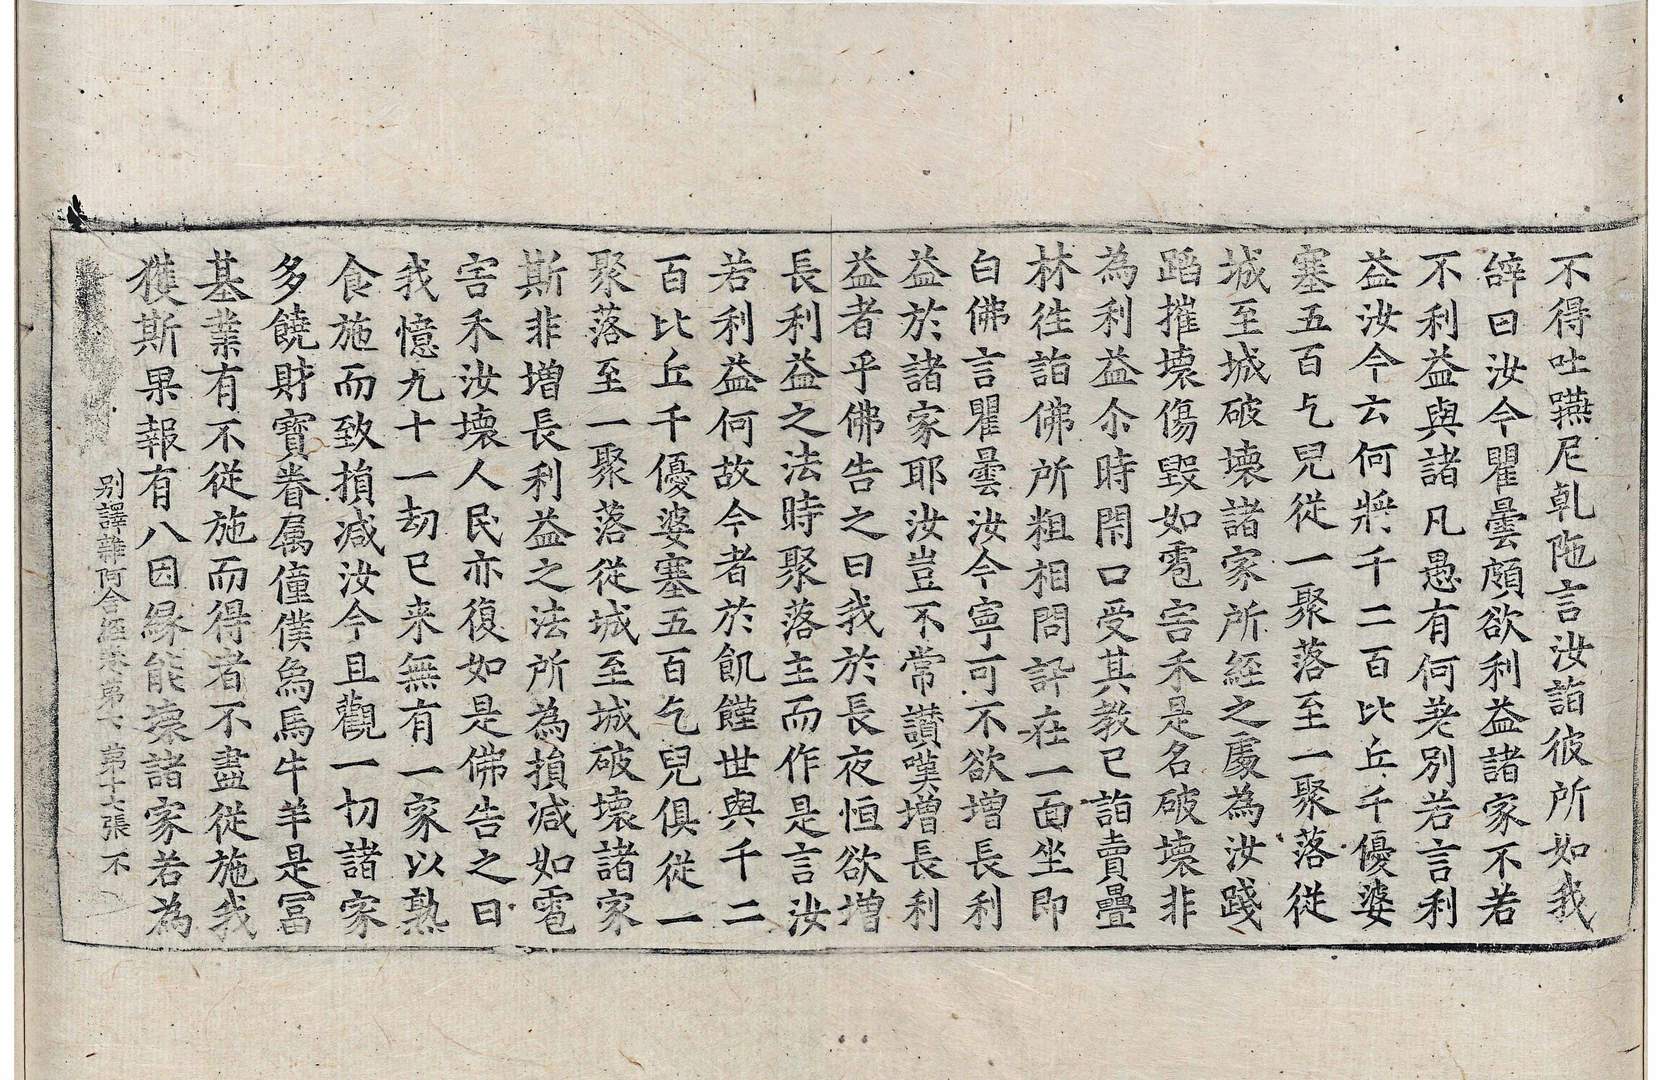 不得吐䜩尼乹陁言汝詣彼所如我
辝曰汝今瞿曇頗欲利益諸家不若
不利益與諸凡愚有何差別若言利
益汝今云何將千二百比丘千優婆
塞五百乞兒從一聚落至一聚落從
城至城破壞諸家所經之處為汝踐
蹈摧壞傷毀如雹害禾是名破壞非
為利益尒時閇口受其教已詣賣疊
林往詣佛所粗相問訊在一面坐即
白佛言瞿曇汝今寧可不欲增長利
益於諸家耶汝豈不常讃嘆增長利
益者乎佛告之曰我於長夜恒欲增
長利益之法時聚落主而作是言汝
若利益何故今者於飢饉世與千二
百比丘千優婆塞五百乞兒俱從一
聚落至一聚落從城至城破壞諸家
斯非增長利益之法所為損减如雹
害禾汝壞人民亦復如是佛告之曰
我憶九十一劫已来無有一家以熟
食施而致損减汝今且觀一切諸家
多饒財寶眷属僮僕為馬牛羊是冨
基業有不從施而得者不盡從施我
獲斯果報有八因緣能壞諸家若為
别譯雜阿含經卷第六 第十六張 不